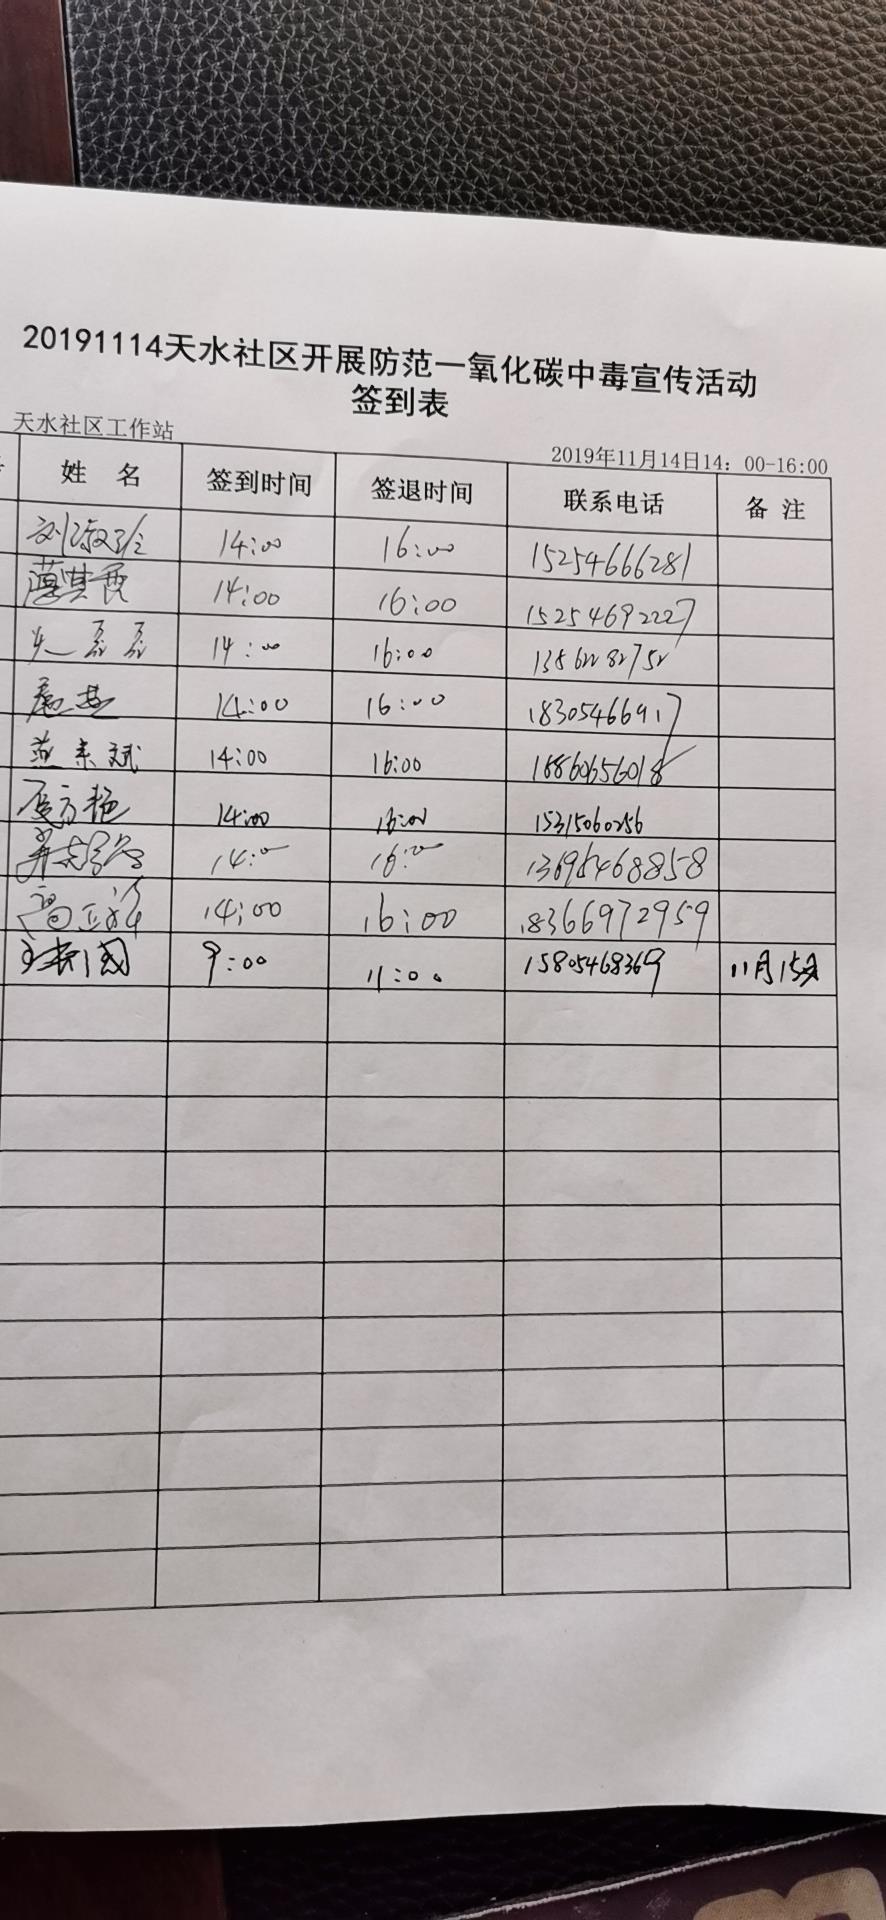 20191114天水社区开展防范一氧化碳中毒宣传活动
签到表
天水社区工作站 2019年11月14日14：00-16:00
姓 名 签到时间 签退时间 联系电话 备 注
14:00 16:00 15254666281
薄其霞 14:00 16:00 15254692227
磊磊 14:00 16:00
14:00 16:00 18305466917
燕来斌 14:00 16:00 18860656018
方艳 14:00 16:00 15315060256
14:00 16:00 13695468858
高 14:00 16:00 18366972959
国 9:00 11:00 15805468369 11月15日